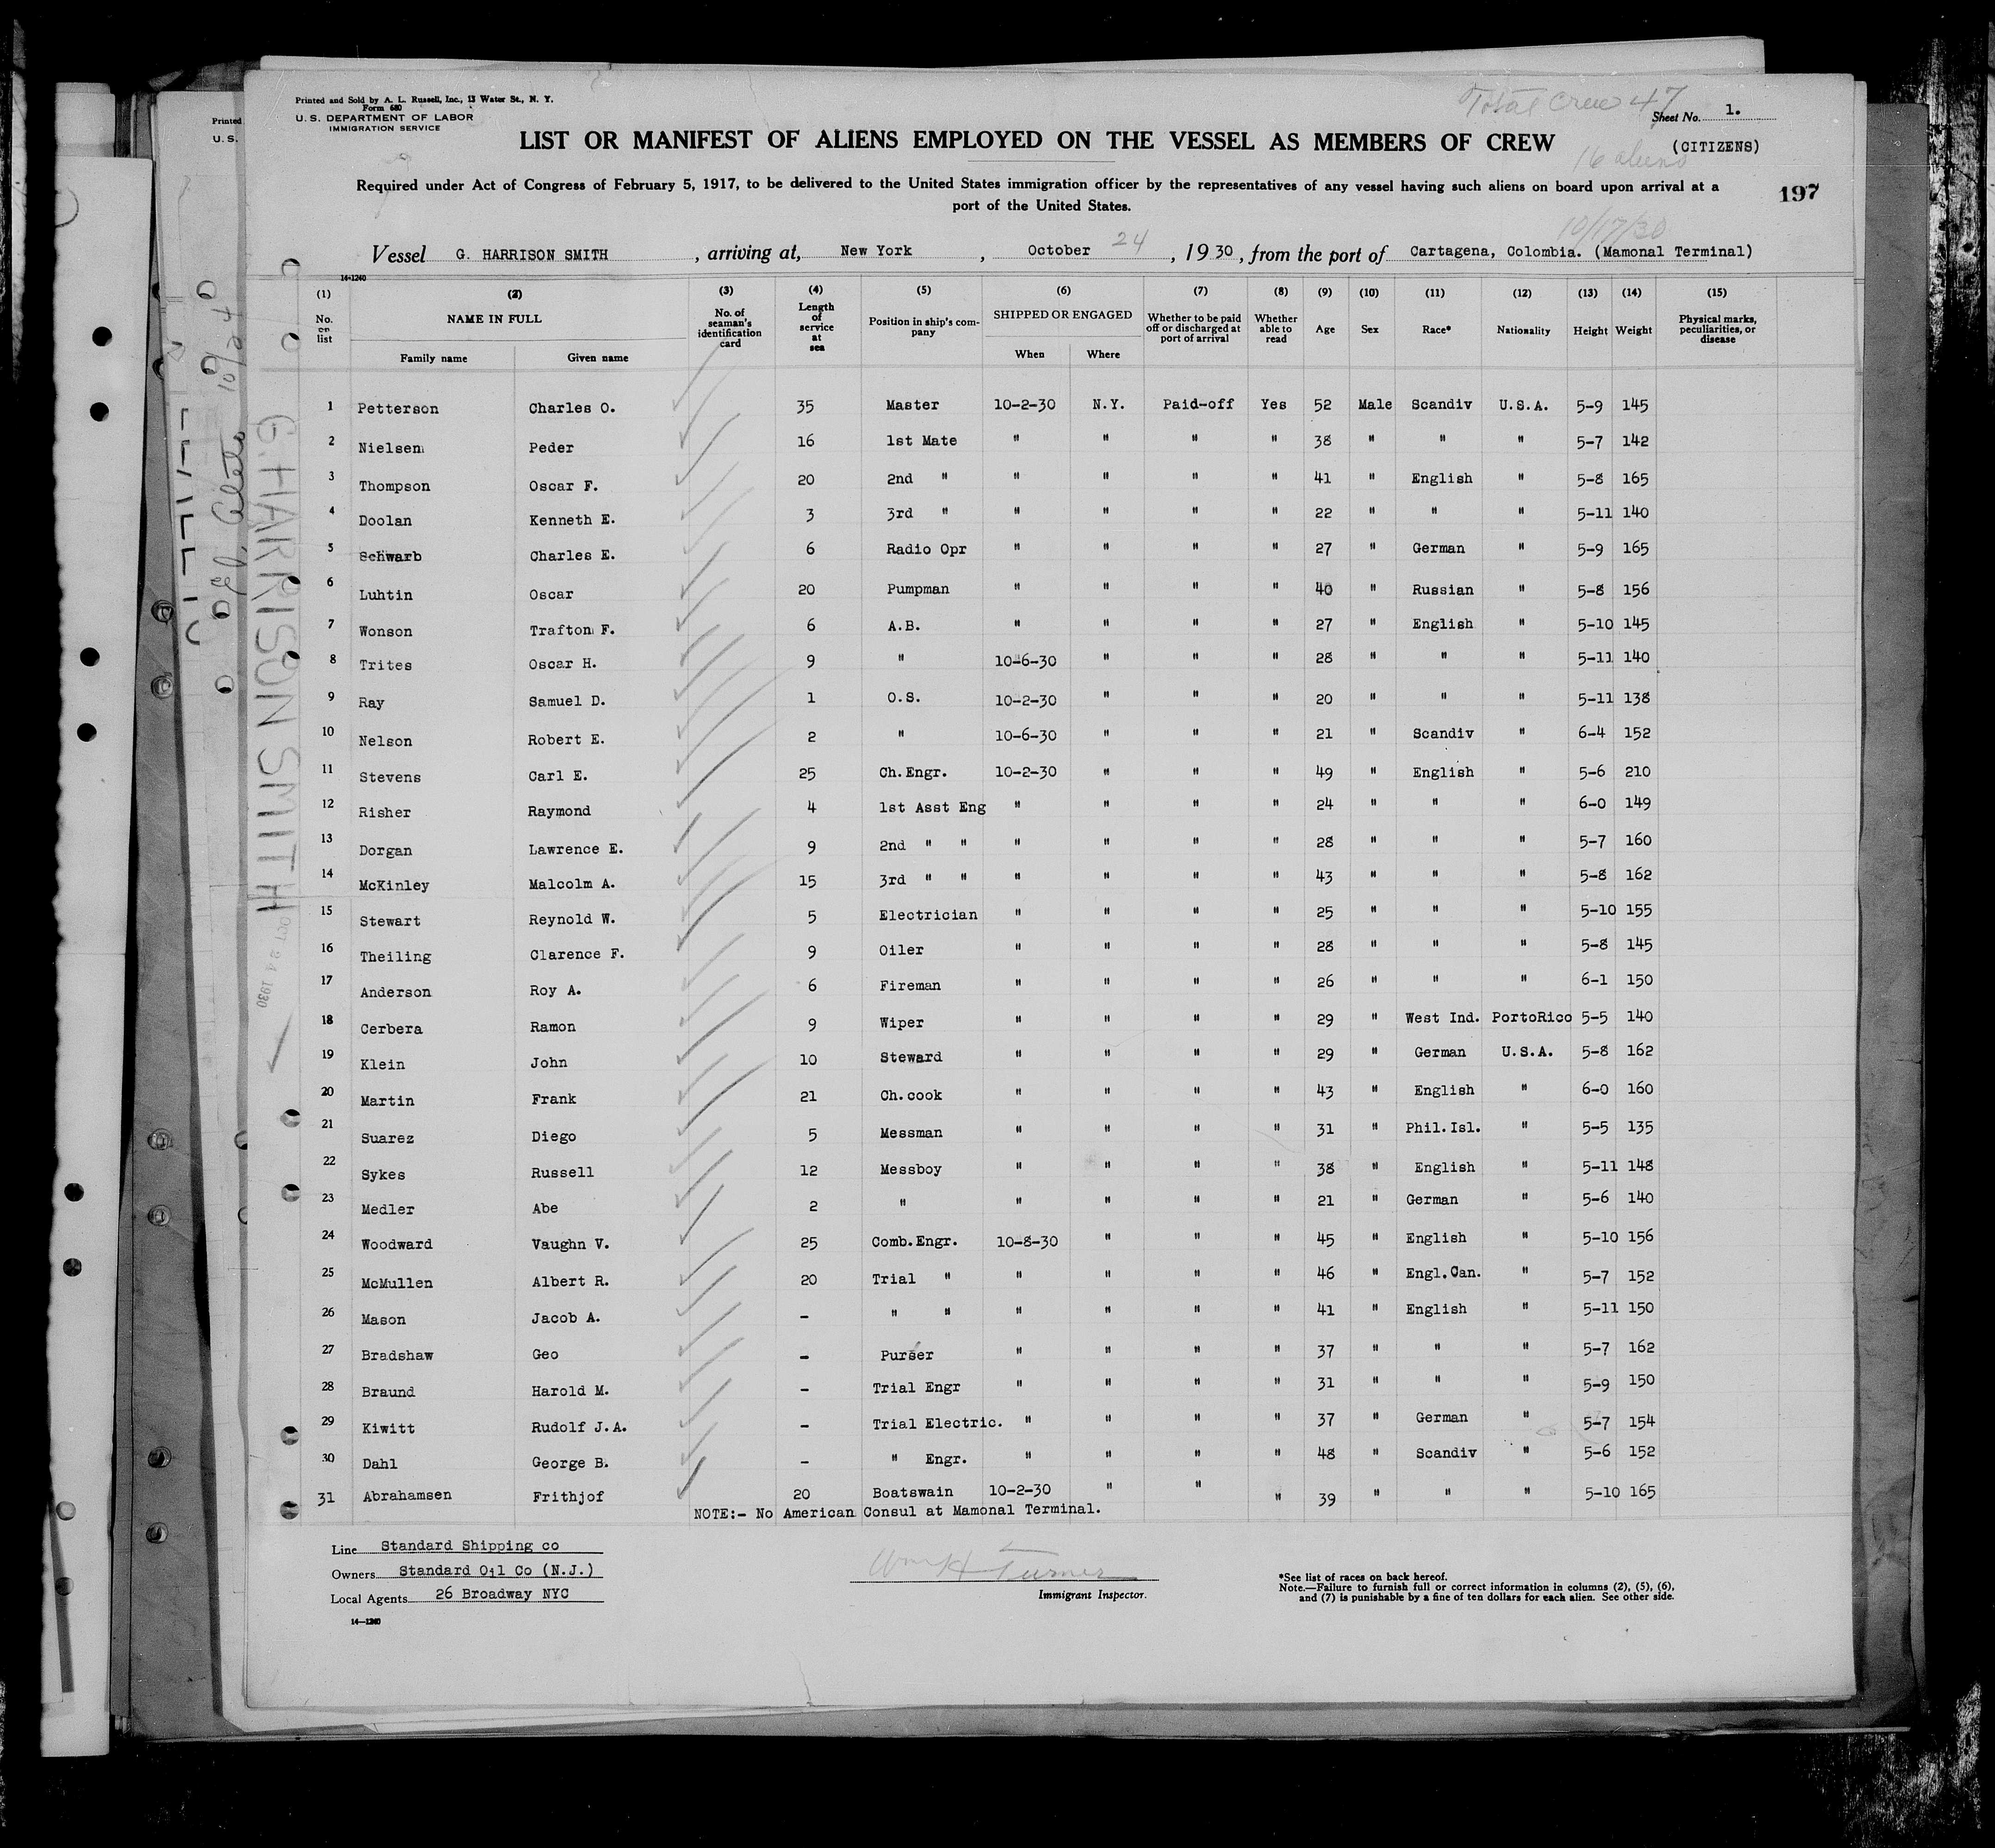 Printed and Sold by A. L. Russell, Inc., 13 Water St., N. Y.
Form 680
U. S. DEPARTMENT OF LABOR
IMMIGRATION SERVICE
Total Crew 47
Sheet No. 1.
LIST OR MANIFEST OF ALIENS EMPLOYED ON THE VESSEL AS MEMBERS OF CREW
(CITIZENS)
16 aliens
Required under Act of Congress of February 5, 1917, to be delivered to the United States immigration officer by the representatives of any vessel having such aliens on board upon arrival at a
port of the United States.
197
10/17/30
Vessel G. HARRISON SMITH, arriving at, New York, October 24, 1930, from the port of Cartagena, Colombia. (Mamonal Terminal)
14-1240
(1) (2) (3) (4) (5) (6) (7) (8) (9) (10) (11) (12) (13) (14) (15)
No. on list NAME IN FULL No. of seaman's identification card Length of service at sea Position in ship's company SHIPPED OR ENGAGED Whether to be paid off or discharged at port of arrival Whether able to read Age Sex Race* Nationality Height Weight Physical marks, peculiarities, or disease
Family name Given name When Where
1 Petterson Charles O. 35 Master 10-2-30 N.Y. Paid-off Yes 52 Male Scandiv U.S.A. 5-9 145
2 Nielsen Peder 16 1st Mate " " " " 38 " " " 5-7 142
3 Thompson Oscar F. 20 2nd " " " " " 41 " English " 5-8 165
4 Doolan Kenneth E. 3 3rd " " " " " 22 " " " 5-11 140
5 Schwarb Charles E. 6 Radio Opr " " " " 27 " German " 5-9 165
6 Luhtin Oscar 20 Pumpman " " " " 40 " Russian " 5-8 156
7 Wonson Trafton F. 6 A.B. " " " " 27 " English " 5-10 145
8 Trites Oscar H. 9 " 10-6-30 " " " 28 " " " 5-11 140
9 Ray Samuel D. 1 O.S. 10-2-30 " " " 20 " " " 5-11 138
10 Nelson Robert E. 2 " 10-6-30 " " " 21 " Scandiv " 6-4 152
11 Stevens Carl E. 25 Ch.Engr. 10-2-30 " " " 49 " English " 5-6 210
12 Risher Raymond 4 1st Asst Eng " " " " 24 " " " 6-0 149
13 Dorgan Lawrence E. 9 2nd " " " " " " 28 " " " 5-7 160
14 McKinley Malcolm A. 15 3rd " " " " " " 43 " " " 5-8 162
15 Stewart Reynold W. 5 Electrician " " " " 25 " " " 5-10 155
16 Theiling Clarence F. 9 Oiler " " " " 28 " " " 5-8 145
17 Anderson Roy A. 6 Fireman " " " " 26 " " " 6-1 150
18 Cerbera Ramon 9 Wiper " " " " 29 " West Ind. PortoRico 5-5 140
19 Klein John 10 Steward " " " " 29 " German U.S.A. 5-8 162
20 Martin Frank 21 Ch.cook " " " " 43 " English " 6-0 160
21 Suarez Diego 5 Messman " " " " 31 " Phil.Isl. " 5-5 135
22 Sykes Russell 12 Messboy " " " " 38 " English " 5-11 148
23 Medler Abe 2 " " " " " 21 " German " 5-6 140
24 Woodward Vaughn V. 25 Comb.Engr. 10-8-30 " " " 45 " English " 5-10 156
25 McMullen Albert R. 20 Trial " " " " " 46 " Engl.Can. " 5-7 152
26 Mason Jacob A. - " " " " " " 41 " English " 5-11 150
27 Bradshaw Geo - Purser " " " " 37 " " " 5-7 162
28 Braund Harold M. - Trial Engr " " " " 31 " " " 5-9 150
29 Kiwitt Rudolf J.A. - Trial Electric. " " " " 37 " German " 5-7 154
30 Dahl George B. - " Engr. " " " " 48 " Scandiv " 5-6 152
31 Abrahamsen Frithjof 20 Boatswain 10-2-30 " " " 39 " " " 5-10 165
NOTE:- No American Consul at Mamonal Terminal.
Line Standard Shipping co
Owners Standard Oil Co (N.J.)
Local Agents 26 Broadway NYC
14-1240
Wm H Turner
Immigrant Inspector.
*See list of races on back hereof.
Note.—Failure to furnish full or correct information in columns (2), (5), (6),
and (7) is punishable by a fine of ten dollars for each alien. See other side.
G. HARRISON SMITH
OCT 24 1930
Printed
U. S.